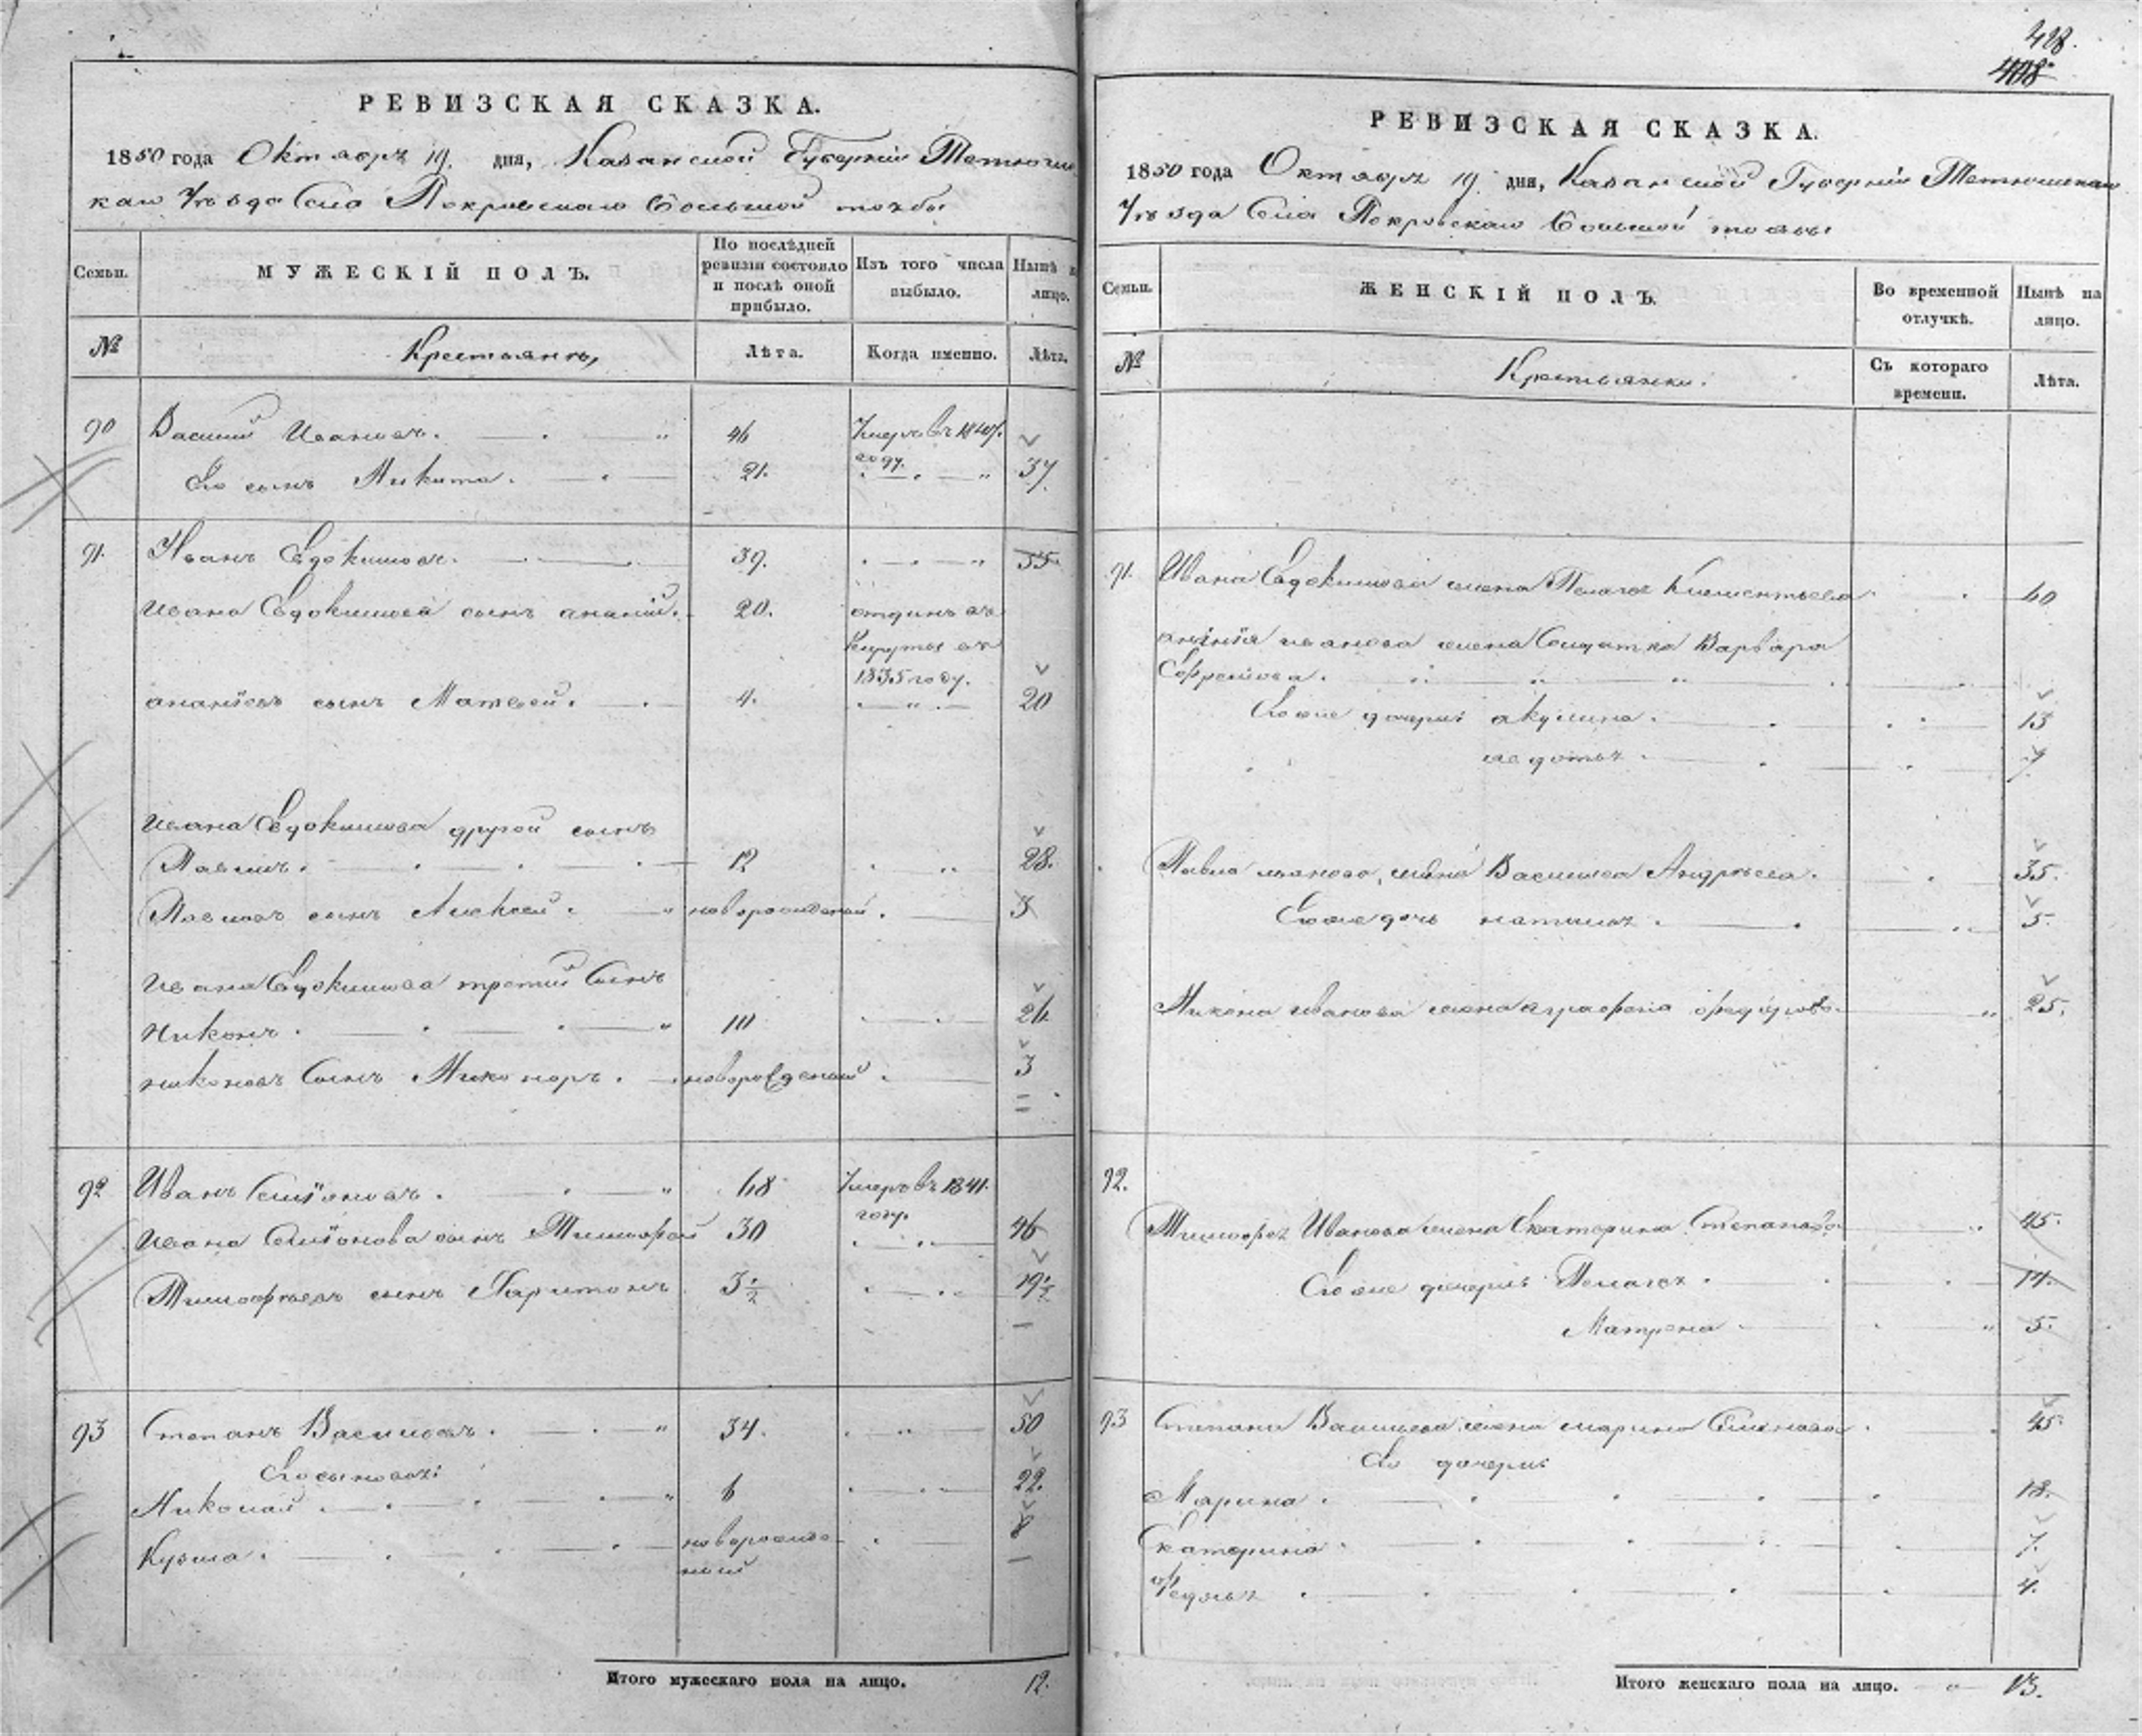 428.
408
РЕВИЗСКАЯ СКАЗКА.
1850 года Октября 19. дня, Казанской Губерніи Тетюшс
каго Уѣзда Села Покровскаго Большой тожбы
Семьи.
МУЖЕСКІЙ ПОЛЪ.
По послѣдней ревизіи состояло и послѣ оной прибыло.
Изъ того числа выбыло.
Нынѣ на лицо.
№
Крестьянъ,
Лѣта.
Когда именно.
Лѣта.
90 Василий Ивановъ. 46 Умеръ въ 1847. году.
Его сынъ Никита. 21. 37.
91. Иванъ Евдокимовъ. 39. 55
Ивана Евдокимова сынъ ананій. 20. отданъ въ
Рекруты въ
1835 году.
ананіевъ сынъ Матвей. 4. 20
Ивана Евдокимова другой сынъ
Павелъ. 12 28.
Павловъ сынъ Алексей. новорожденый. 3
Ивана Евдокимова третий Сынъ
Никонъ. 10 26
никоновъ Сынъ Никоноръ. новорожденый. 3
92 Иванъ Семіоновъ. 68 Умеръ въ 1841.
году.
Ивана Семіонова сынъ Тимофей 30 46
Тимофѣевъ сынъ Харитонъ 3 1/2 19 1/2
93 Степанъ Васильевъ. 34. 50
Его сыновья:
Николай. 6 22.
Кузма. новорожде-
ный 8
Итого мужескаго пола на лицо. 12.
РЕВИЗСКАЯ СКАЗКА.
1850 года Октября 19. дня, Казанской Губерніи Тетюшскаго
Уѣзда Села Покровскаго Большой тожбы
Семьи.
ЖЕНСКІЙ ПОЛЪ.
Во временной отлучкѣ.
Нынѣ на лицо.
№
Крестьянки.
Съ котораго времени.
Лѣта.
91. Ивана Евдокимова жена Пелагея Климентьева. 60
ананія иванова жена Солдатка Варвара
Ефремова.
Ее же дочери: акулина. 13
авдотья. 7
Павла иванова, жена Василиса Андрѣева. 35.
Ее же дочь наталья. 5.
Никона иванова жена аграфена федорова. 25.
92.
Тимофея Иванова жена Екатерина Степанова 45.
Ее же дочери: Пелагея. 14.
Матрена 5.
93 Степана Васильева жена марина Семенова. 45
Ее дочери:
Марина. 18.
Екатерина. 7.
Федосья 4.
Итого женскаго пола на лицо. 13.